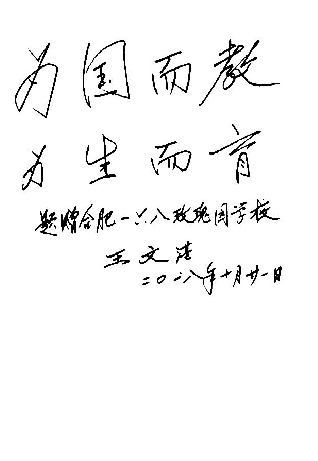 为国而教
为生而育
题赠合肥一六八玫瑰园学校
王文湛
二〇一八年十月廿一日